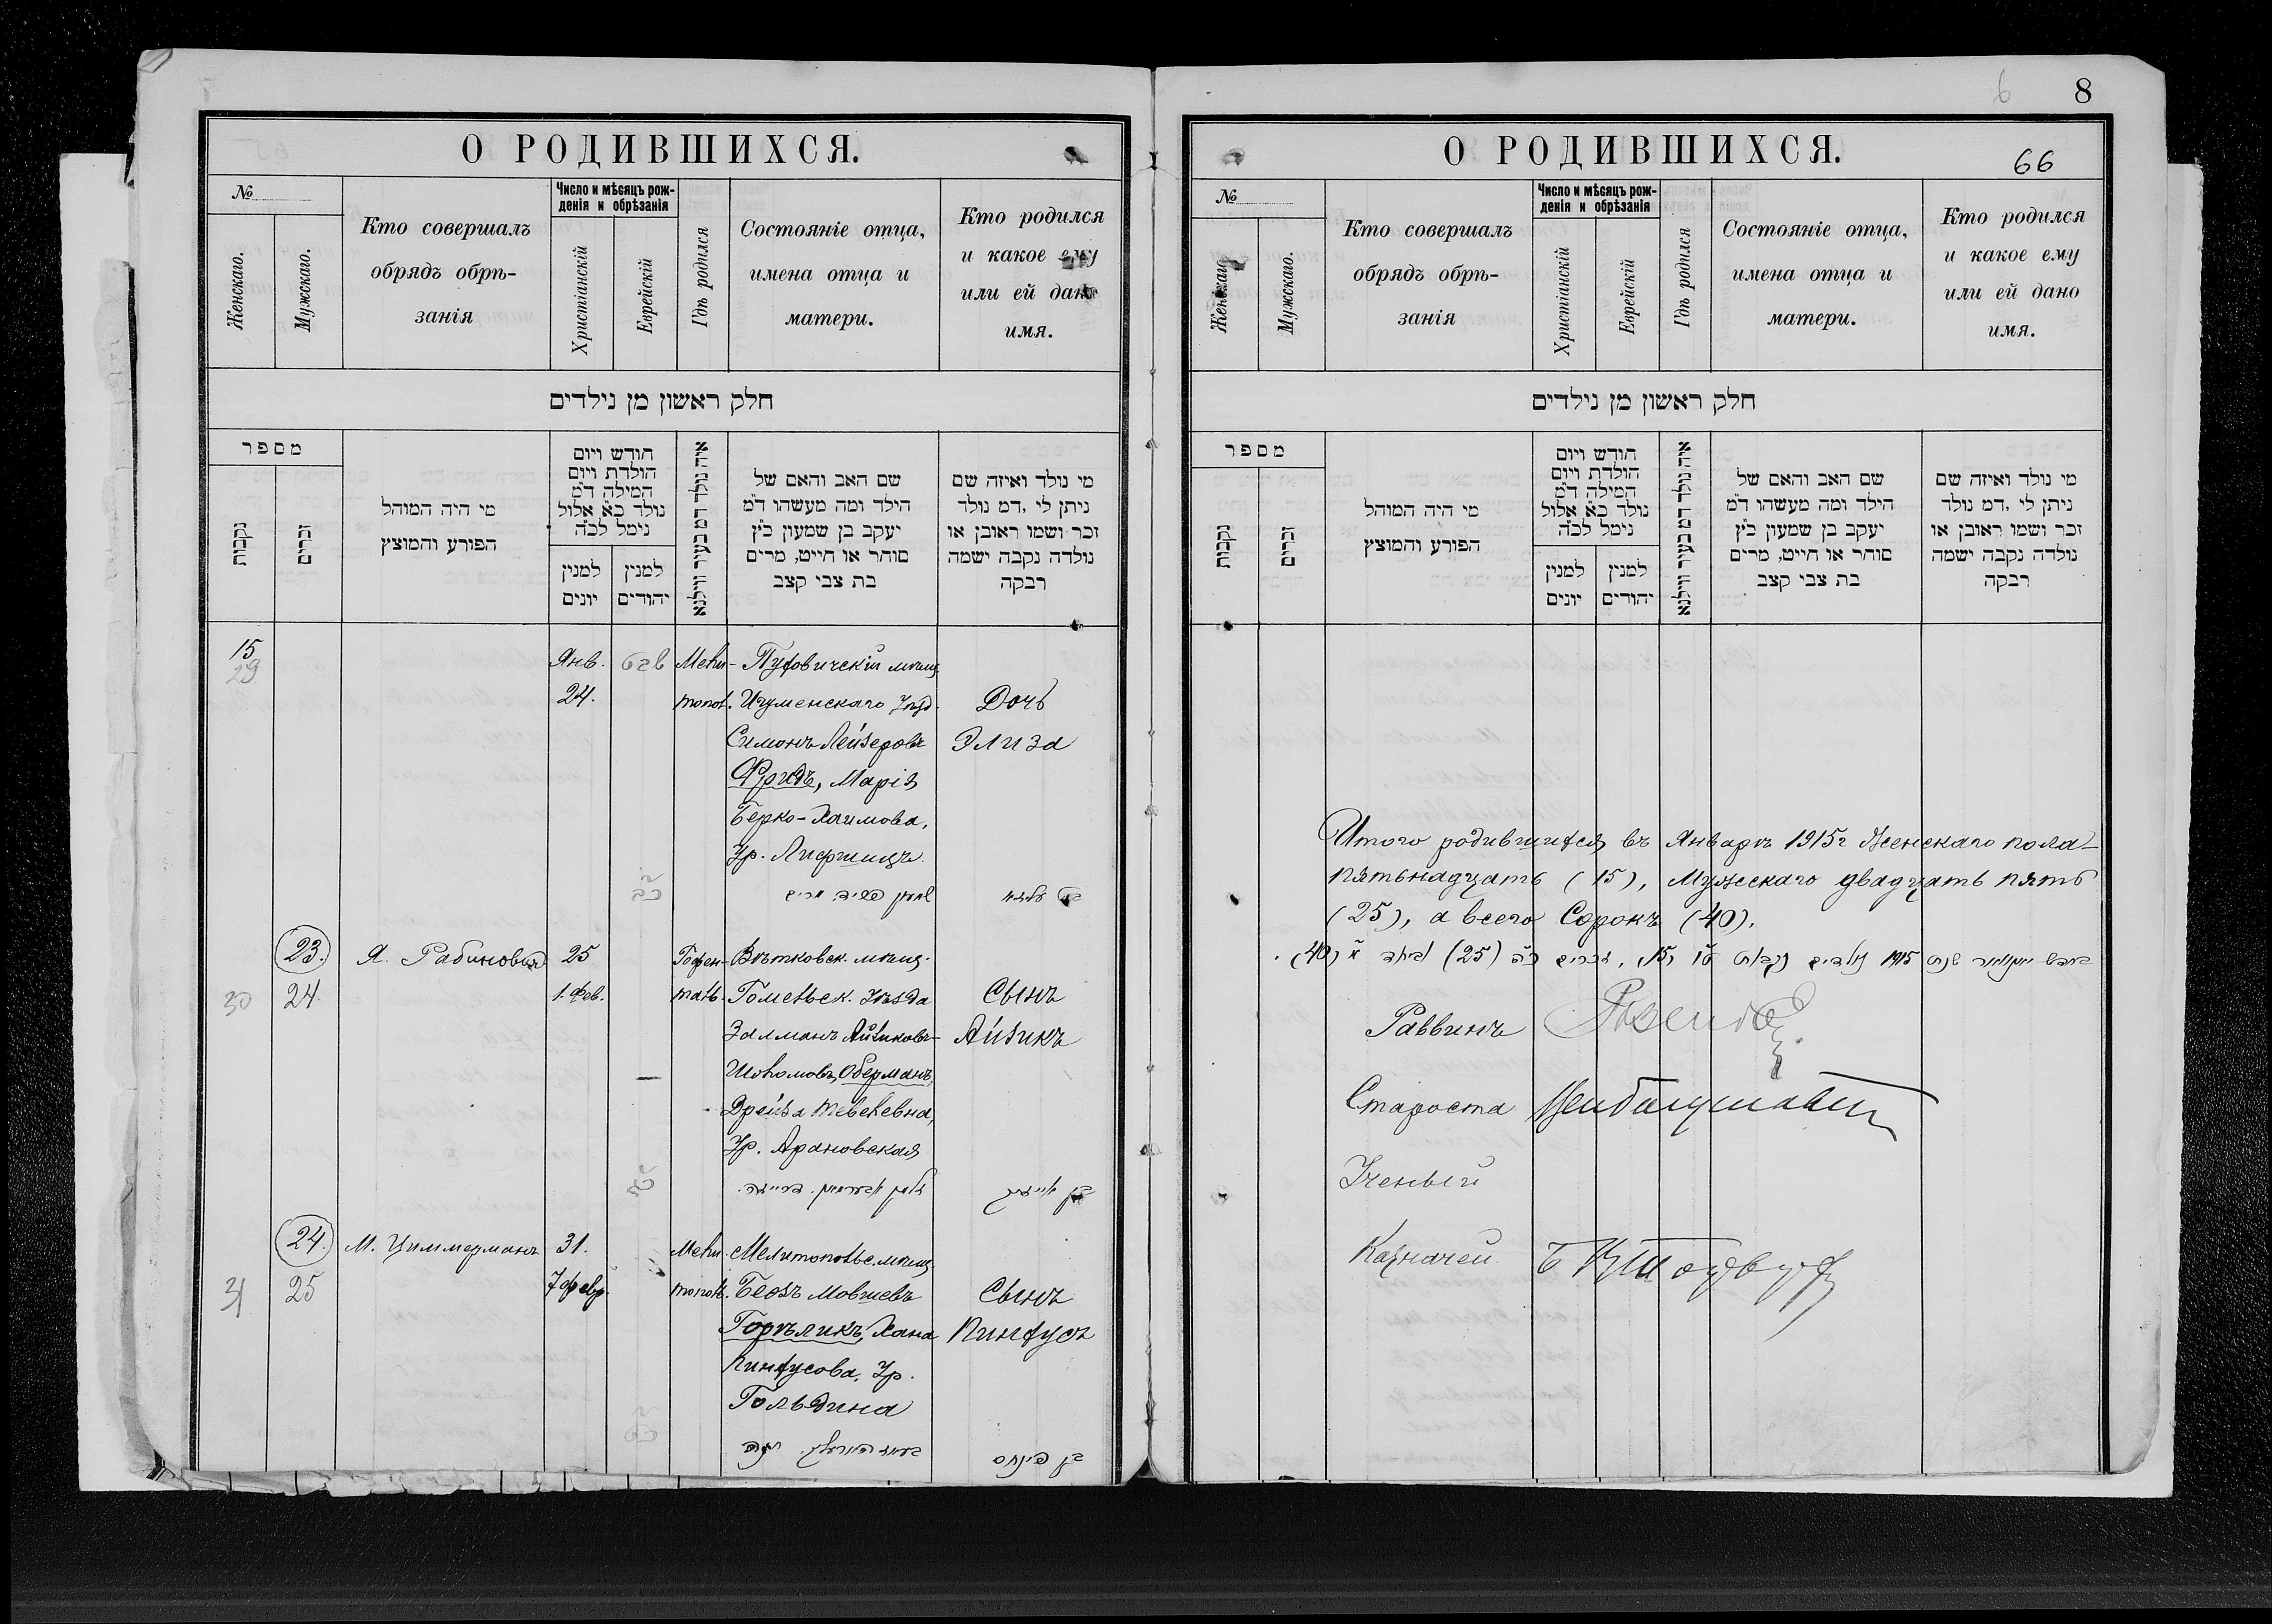 О РОДИВШИХСЯ.
№
Женскаго.
Мужскаго.
Кто совершалъ
обрядъ обрѣ-
занія
Число и мѣсяцъ рож-
денія и обрѣзанія
Христіанскій
Еврейскій
Гдѣ родился
Состояніе отца,
имена отца и
матери.
Кто родился
и какое ему
или ей дано
имя.
חלק ראשון מן נילדים
מספר
נקבות
זכרים
מי היה המוהל
הפורע והמוצץ
חודש ויום
הולדת ויום
המילה ד"מ
נולד כ"א אלול
נימל לכ"ה
למנין
יונים
למנין
יהודים
איה נולד דמ בעיר ווילנא
שם האב והאם של
הילד ומה מעשהו ד"מ
יעקב בן שמעון כ"ץ
סוחר או חייט, מרים
בת צבי קצב
מי נולד ואיזה שם
ניתן לי, דמ נולד
זכר ושמו ראובן או
נולדה נקבה ישמה
רבקה
15
29
Янв.
24.
שבט
Мели-
топол.
Пуховичскій мѣщ.
Игуменскаго Уѣзд.
Симонъ Лейзеровъ
Фридъ, Марія
Берко-Хаимова,
Ур. Лифшицъ
שמעון פריד. מרים
Дочь
Элиза
בת אליזא
23.
24
30
Я. Рабиновичъ
25
1. Фев.
Вѣтковск. мѣщ.
Гомельск. Уѣзда
Залманъ Айзиковъ-
Шоломовъ Оберманъ,
Дрейза Тевелевна,
Ур. Арановская
זלמן אבערמאן. דרייזא.
Сынъ
Айзикъ
בן אייזיק
24.
25
31
М. Циммерманъ
31.
7 февр.
Мели-
топол.
Мелитопольс. мѣщ.
Беозъ Мовшевъ
Горѣликъ, Хана
Пинхусова, Ур.
Гольдина
Сынъ
Пинхусъ
בן פינחס
8
6
О РОДИВШИХСЯ.
66
№
Женскаго.
Мужскаго.
Кто совершалъ
обрядъ обрѣ-
занія
Число и мѣсяцъ рож-
денія и обрѣзанія
Христіанскій
Еврейскій
Гдѣ родился
Состояніе отца,
имена отца и
матери.
Кто родился
и какое ему
или ей дано
имя.
חלק ראשון מן נילדים
מספר
נקבות
זכרים
מי היה המוהל
הפורע והמוצץ
חודש ויום
הולדת ויום
המילה ד"מ
נולד כ"א אלול
נימל לכ"ה
למנין
יונים
למנין
יהודים
איה נולד דמ בעיר ווילנא
שם האב והאם של
הילד ומה מעשהו ד"מ
יעקב בן שמעון כ"ץ
סוחר או חייט, מרים
בת צבי קצב
מי נולד ואיזה שם
ניתן לי, דמ נולד
זכר ושמו ראובן או
נולדה נקבה ישמה
רבקה
Итого родившихся въ Январѣ 1915г Женскаго пола-
пятьнадцать (15), Мужескаго двадцать пять
(25), а всего Сорокъ (40).
בחדש יאנואר שנת 1915 נולדים נקבות ט"ו (15), זכרים כ"ה (25) ביחד מ' (40).
Раввинъ
Староста
Ученый
Казначей